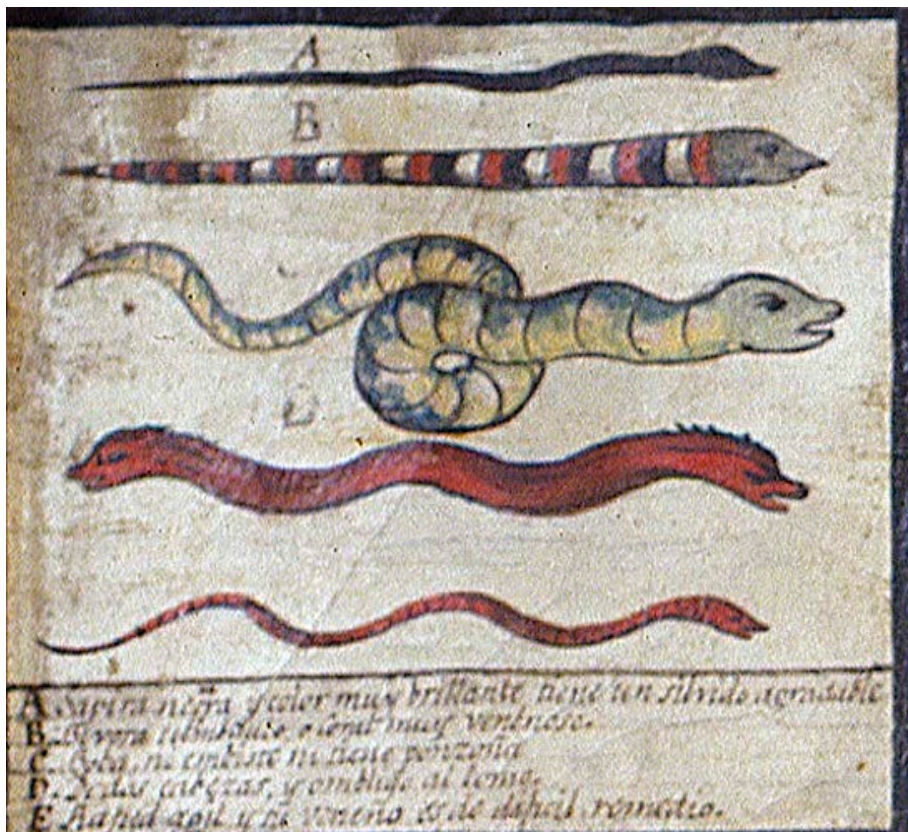 A
B
D
A. negra y color muy brillante tiene un silvido agradable
B. muy venenoso.
C. ni embiste ni tiene ponzoña
D. De dos cabezas, y al lomo.
E agil y su veneno es de dificil remedio.